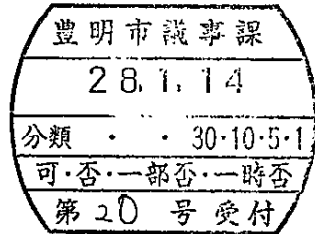 豊明市議事課
28.1.14
分類 ・ ・ 30・10・5・1
可・否・一部否・一時否
第20号受付